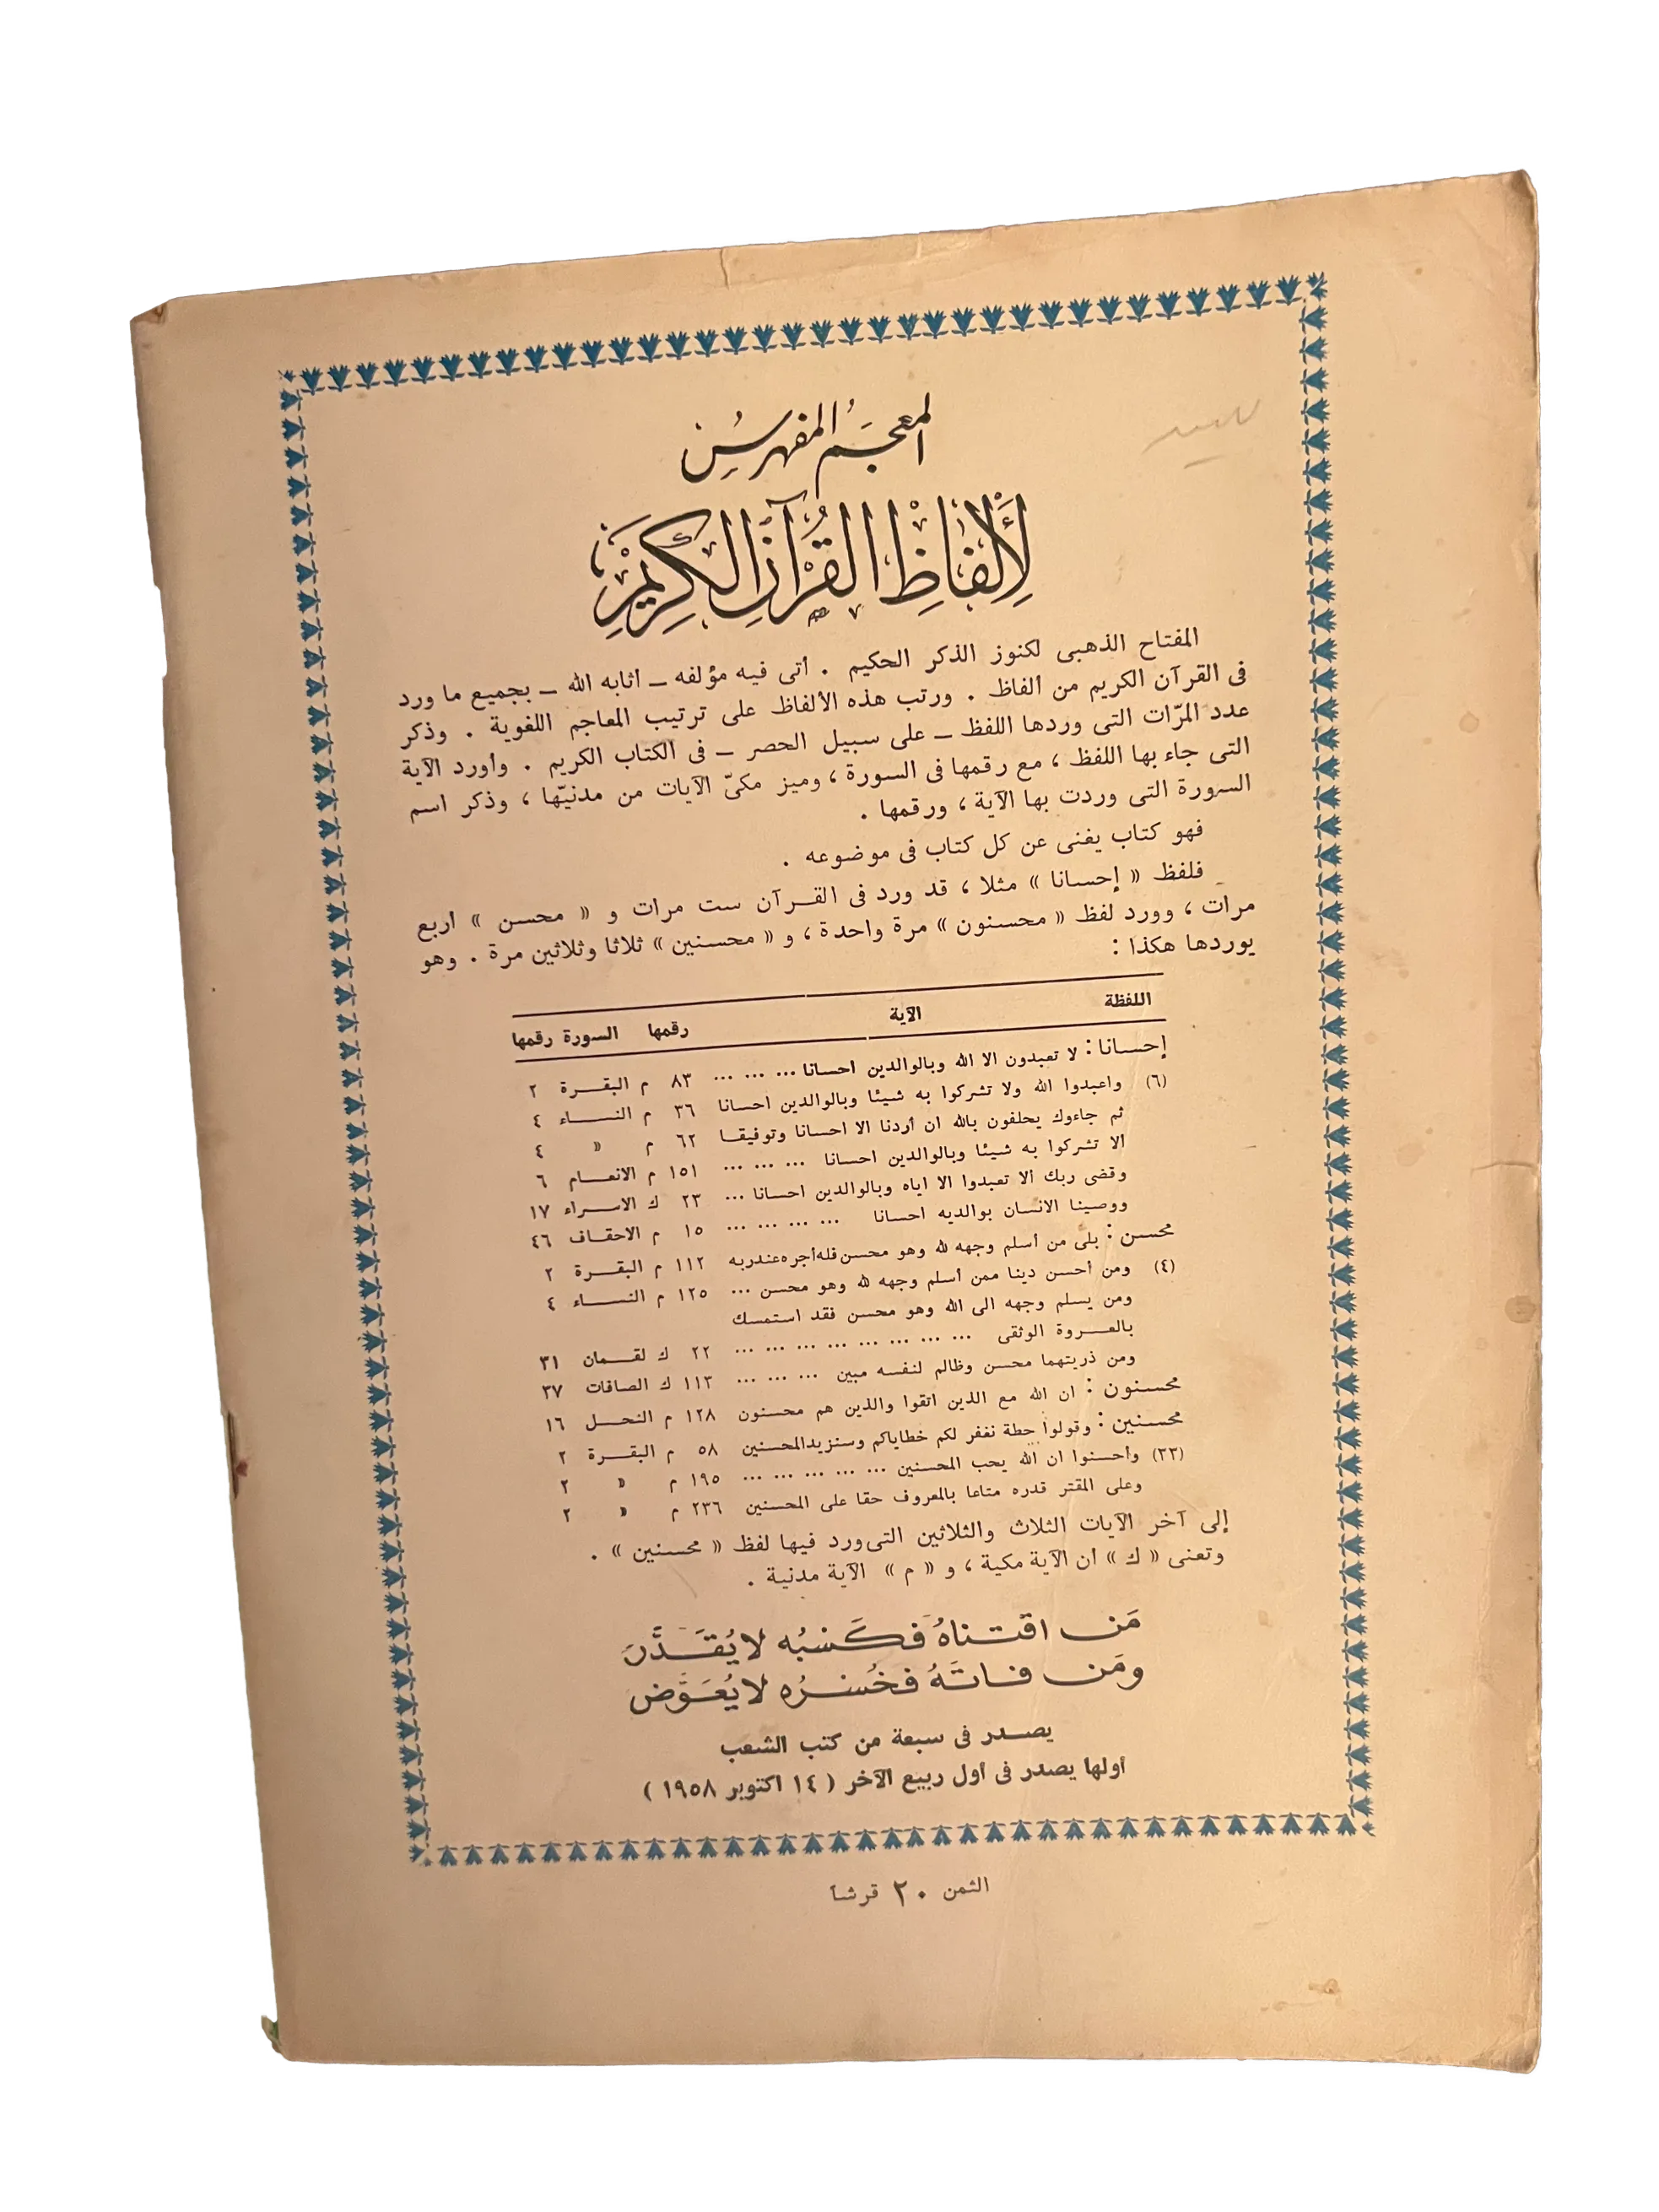 المعجم المفهرس
لألفاظ القرآن الكريم
المفتاح الذهبى لكنوز الذكر الحكيم . أتى فيه مؤلفه – أثابه الله – بجميع ما ورد
فى القرآن الكريم من ألفاظ . ورتب هذه الألفاظ على ترتيب المعاجم اللغوية . وذكر
عدد المرّات التى وردها اللفظ – على سبيل الحصر – فى الكتاب الكريم . وأورد الآية
التى جاء بها اللفظ ، مع رقمها فى السورة ، وميز مكىّ الآيات من مدنيّها ، وذكر اسم
السورة التى وردت بها الآية ، ورقمها .
فهو كتاب يغنى عن كل كتاب فى موضوعه .
فلفظ « إحسانا » مثلا ، قد ورد فى القرآن ست مرات و « محسن » أربع
مرات ، وورد لفظ « محسنون » مرة واحدة ، و « محسنين » ثلاثا وثلاثين مرة . وهو
يوردها هكذا :
اللفظة الآية رقمها السورة رقمها
إحسانا : لا تعبدون الا الله وبالوالدين احسانا ... ... ... ٨٣ م البقرة ٢
(٦) واعبدوا الله ولا تشركوا به شيئا وبالوالدين احسانا ٣٦ م النساء ٤
ثم جاءوك يحلفون بالله ان أردنا الا احسانا وتوفيقا ٦٢ م « ٤
ألا تشركوا به شيئا وبالوالدين احسانا ... ... ... ١٥١ م الانعام ٦
وقضى ربك ألا تعبدوا الا اياه وبالوالدين احسانا ... ٢٣ ك الاسراء ١٧
ووصينا الانسان بوالديه احسانا ... ... ... ... ١٥ م الاحقاف ٤٦
محسن : بلى من أسلم وجهه لله وهو محسن فله أجره عند ربه ١١٢ م البقرة ٢
(٤) ومن أحسن دينا ممن أسلم وجهه لله وهو محسن ... ١٢٥ م النساء ٤
ومن يسلم وجهه الى الله وهو محسن فقد استمسك
بالعروة الوثقى ... ... ... ... ... ... ... ... ٢٢ ك لقمان ٣١
ومن ذريتهما محسن وظالم لنفسه مبين ... ... ... ١١٣ ك الصافات ٣٧
محسنون : ان الله مع الذين اتقوا والذين هم محسنون ١٢٨ م النحل ١٦
محسنين : وقولوا حطة نغفر لكم خطاياكم وسنزيد المحسنين ٥٨ م البقرة ٢
(٣٣) وأحسنوا ان الله يحب المحسنين ... ... ... ... ... ١٩٥ م « ٢
وعلى المقتر قدره متاعا بالمعروف حقا على المحسنين ٢٣٦ م « ٢
إلى آخر الآيات الثلاث والثلاثين التى ورد فيها لفظ « محسنين » .
وتعنى « ك » أن الآية مكية ، و « م » الآية مدنية .
مَن اقتناهُ فكَسْبُه لا يُقَدَّر
ومَن فاتَهُ فخُسْرُه لا يُعَوَّض
يصدر فى سبعة من كتب الشعب
أولها يصدر فى أول ربيع الآخر ( ١٤ اكتوبر ١٩٥٨ )
الثمن ٢٠ قرشا